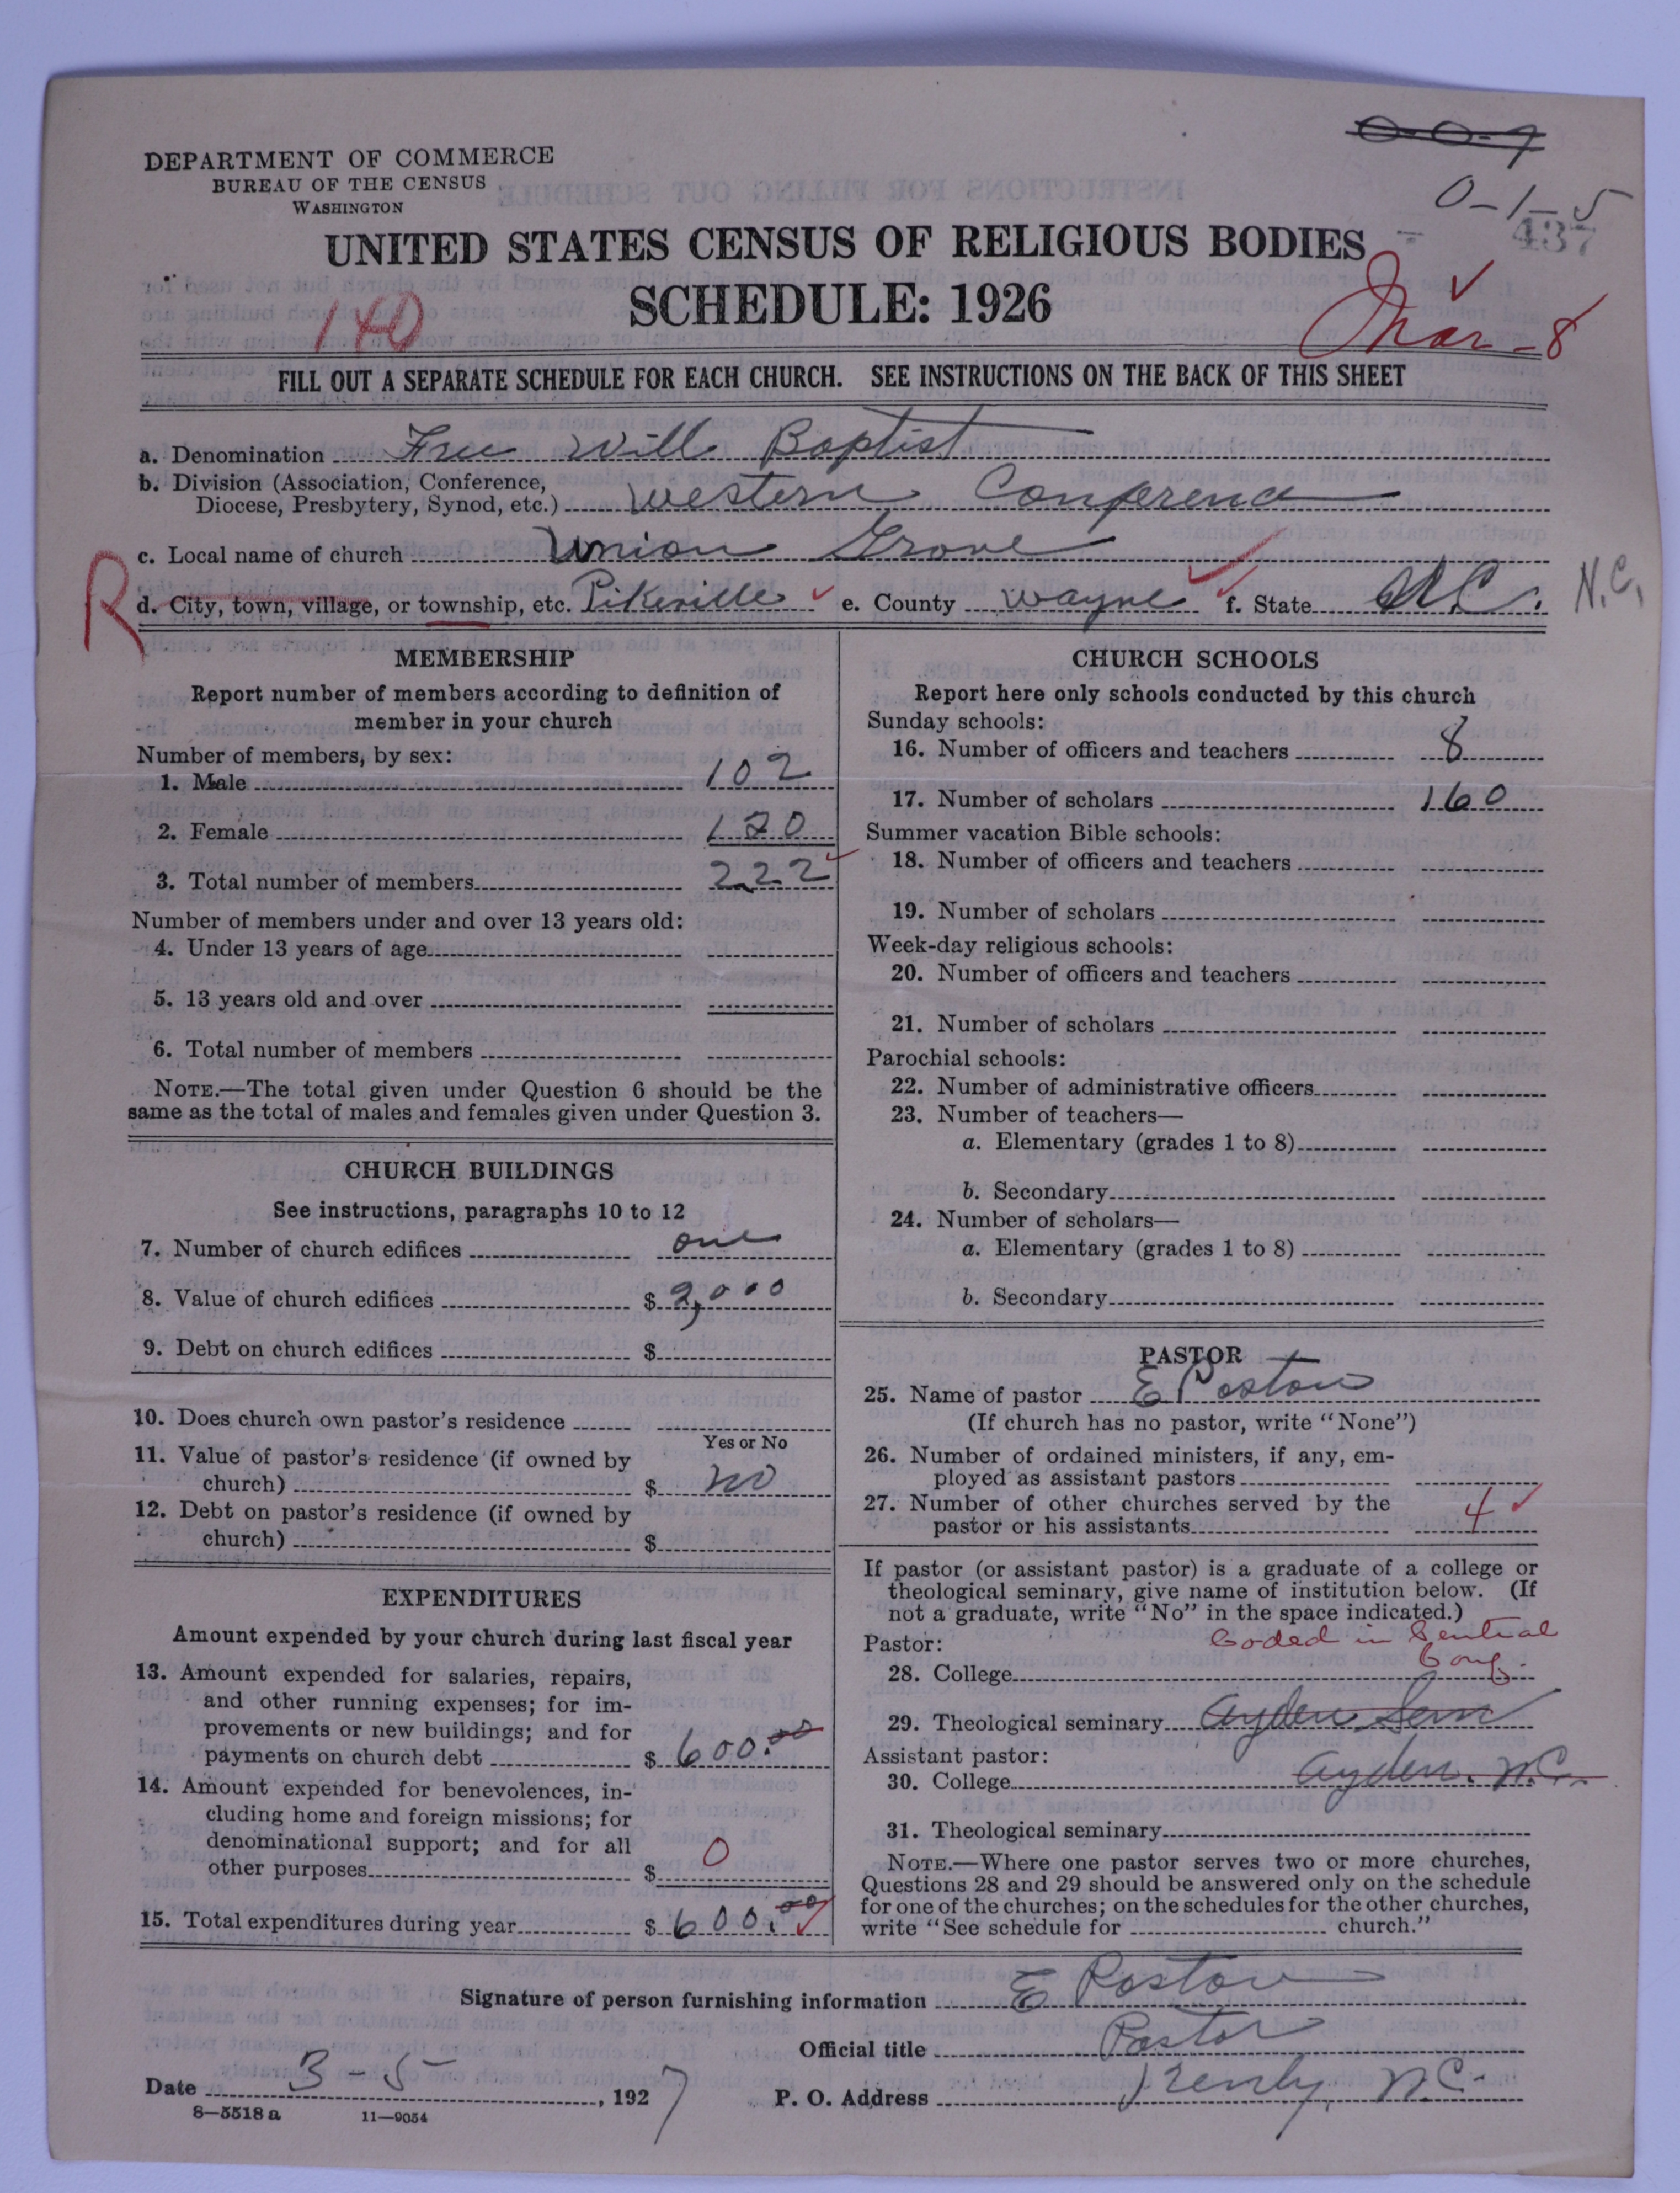 0-0-9
DEPARTMENT OF COMMERCE
BUREAU OF THE CENSUS
WASHINGTON
0-1-5
437
UNITED STATES CENSUS OF RELIGIOUS BODIES
SCHEDULE: 1926
140
Mar-8
FILL OUT A SEPARATE SCHEDULE FOR EACH CHURCH. SEE INSTRUCTIONS ON THE BACK OF THIS SHEET
a. Denomination Free Will Baptist
b. Division (Association, Conference,
Diocese, Presbytery, Synod, etc.) Western Conference
c. Local name of church Union Grove
R d. City, town, village, or township, etc. Pikeville e. County Wayne f. State N.C. N.C.
MEMBERSHIP
Report number of members according to definition of
member in your church
Number of members, by sex:
1. Male 102
2. Female 120
3. Total number of members 222
Number of members under and over 13 years old:
4. Under 13 years of age
5. 13 years old and over
6. Total number of members
NOTE.—The total given under Question 6 should be the
same as the total of males and females given under Question 3.
CHURCH BUILDINGS
See instructions, paragraphs 10 to 12
7. Number of church edifices one
8. Value of church edifices $ 2,000
9. Debt on church edifices $
10. Does church own pastor's residence
Yes or No
11. Value of pastor's residence (if owned by
church) $ no
12. Debt on pastor's residence (if owned by
church) $
EXPENDITURES
Amount expended by your church during last fiscal year
13. Amount expended for salaries, repairs,
and other running expenses; for im-
provements or new buildings; and for
payments on church debt $ 600.00
14. Amount expended for benevolences, in-
cluding home and foreign missions; for
denominational support; and for all
other purposes $ 0
15. Total expenditures during year $ 600.00
CHURCH SCHOOLS
Report here only schools conducted by this church
Sunday schools:
16. Number of officers and teachers 8
17. Number of scholars 160
Summer vacation Bible schools:
18. Number of officers and teachers
19. Number of scholars
Week-day religious schools:
20. Number of officers and teachers
21. Number of scholars
Parochial schools:
22. Number of administrative officers
23. Number of teachers—
a. Elementary (grades 1 to 8)
b. Secondary
24. Number of scholars—
a. Elementary (grades 1 to 8)
b. Secondary
PASTOR
25. Name of pastor E Poston
(If church has no pastor, write "None")
26. Number of ordained ministers, if any, em-
ployed as assistant pastors
27. Number of other churches served by the
pastor or his assistants 4
If pastor (or assistant pastor) is a graduate of a college or
theological seminary, give name of institution below. (If
not a graduate, write "No" in the space indicated.)
Pastor: Coded in Central
28. College Conf.
29. Theological seminary Ayden Sem
Assistant pastor:
30. College Ayden, N.C.
31. Theological seminary
NOTE.—Where one pastor serves two or more churches,
Questions 28 and 29 should be answered only on the schedule
for one of the churches; on the schedules for the other churches,
write "See schedule for church."
Signature of person furnishing information E Poston
Official title Pastor
Date 3-5, 1927 P. O. Address Kenly, N.C.
8—5518 a 11—9054